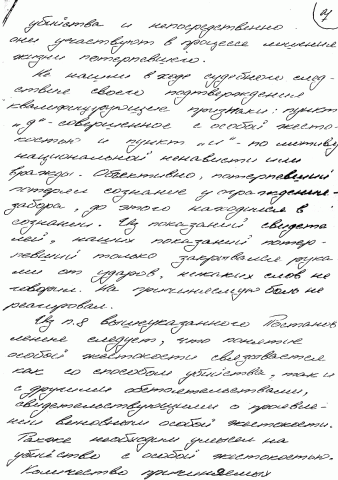 7
убийства и непосредственно
они участвуют в процессе лишения
жизни потерпевшего.
Не нашли в ходе судебного след-
ствия своего подтверждения
квалифицирующие признаки: пункт
"д"- совершенное с особой жесто-
костью и пункт "л" - по мотиву
национальной ненависти или
вражды. Объективно, потерпевший
потерял сознание у ограждения-
забора, до этого находился в
сознании. Из показаний свидете
лей, наших показаний потер-
певший только закрывался рука
ми от ударов, никаких слов не
говорил. На причиняемую боль не
реагировал.
Из п.8 вышеуказанного Постанов
ления следует, что понятие
особой жестокости связывается
как со способом убийства, так и
с другими обстоятельствами,
свидетельствующими о проявле-
нии виновным особой жестокости.
Также необходим умысел на
убийство с особой жестокостью.
Количество причиняемых